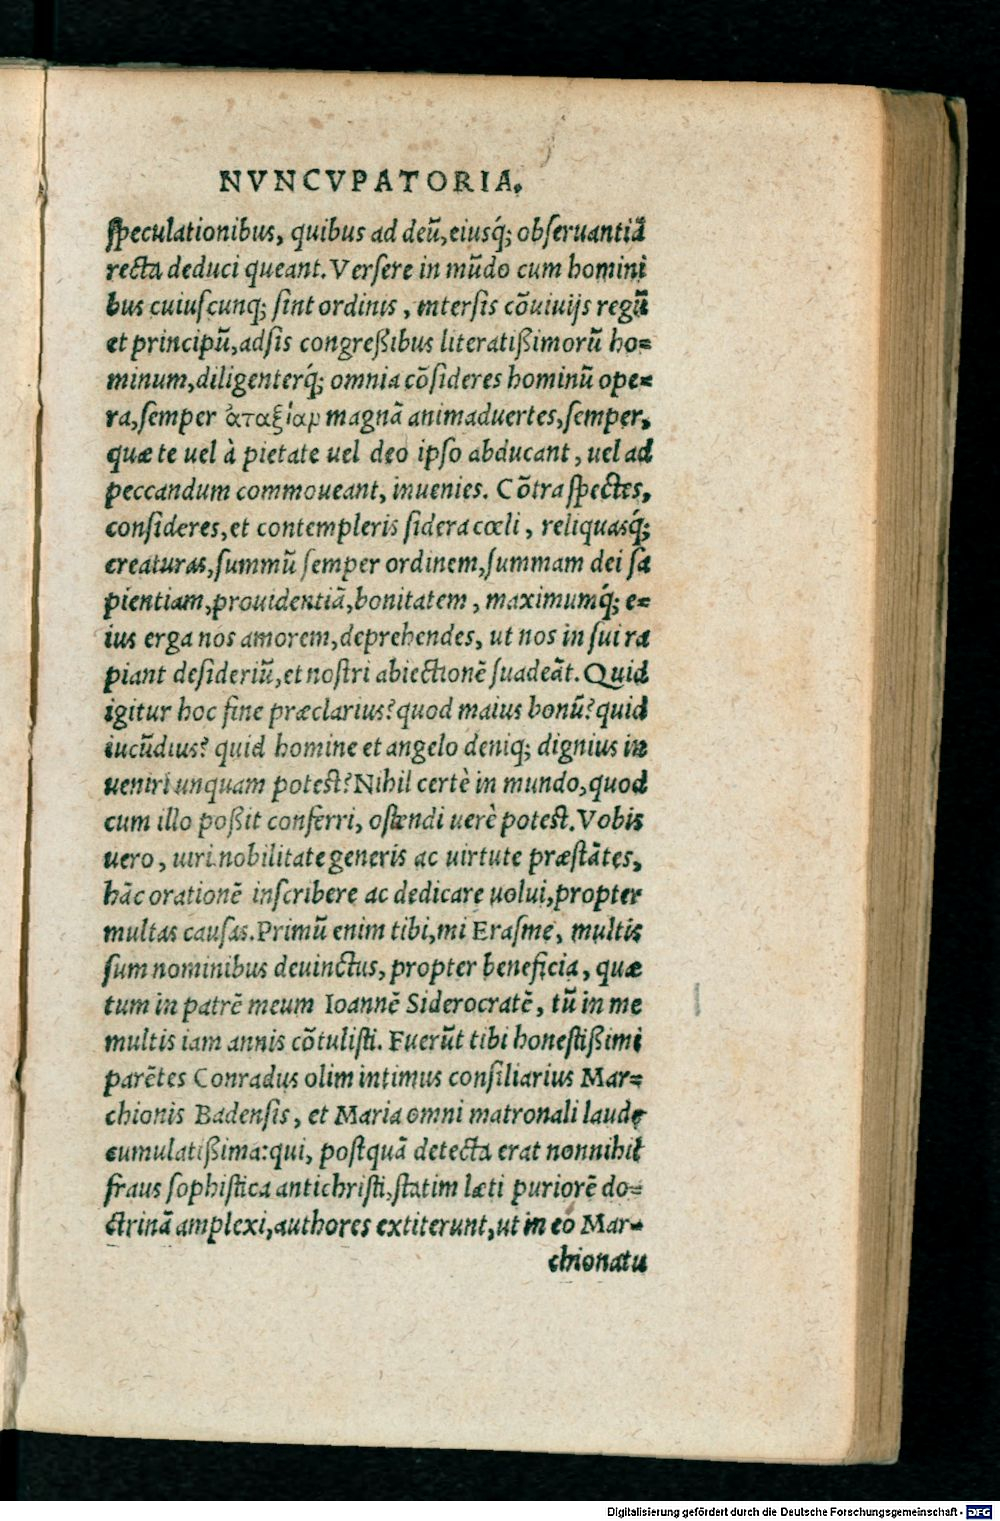 NVNCVPATORIA.
ſpeculationibus, quibus ad deũ, eiusq́; obſeruantiã
recta deduci queant. Verſere in mũdo cum homini
bus cuiuſcunq; ſint ordinis, interſis cõuiuijs regũ
et principũ, adſis congreßibus literatißimorũ ho=
minum, diligenterq́; omnia cõſideres hominũ ope=
ra, ſemper ἀταξίαν magnã animaduertes, ſemper,
quæ te uel à pietate uel deo ipſo abducant, uel ad
peccandum commoueant, inuenies. Cõtra ſpectes,
conſideres, et contempleris ſidera cœli, reliquasq́;
creaturas, ſummũ ſemper ordinem, ſummam dei ſa
pientiam, prouidentiã, bonitatem, maximumq́; e=
ius erga nos amorem, deprehendes, ut nos in ſui ra
piant deſideriũ, et noſtri abiectionẽ ſuadeãt. Quid
igitur hoc fine præclarius? quod maius bonũ? quid
iucũdius? quid homine et angelo deniq; dignius in
ueniri unquam poteſt? Nihil certè in mundo, quod
cum illo poßit conferri, oſtendi uerè poteſt. Vobis
uero, uiri nobilitate generis ac uirtute præſtãtes,
hãc orationẽ inſcribere ac dedicare uolui, propter
multas cauſas. Primũ enim tibi, mi Eraſme, multis
ſum nominibus deuinctus, propter beneficia, quæ
tum in patrẽ meum Ioannẽ Siderocratẽ, tũ in me
multis iam annis cõtuliſti. Fuerũt tibi honeſtißimi
parẽtes Conradus olim intimus conſiliarius Mar=
chionis Badenſis, et Maria omni matronali laude
cumulatißima: qui, poſtquã detecta erat nonnihil
fraus ſophiſtica antichriſti, ſtatim læti puriorẽ do=
ctrinã amplexi, authores extiterunt, ut in eo Mar=
chionatu
Digitalisierung gefördert durch die Deutsche Forschungsgemeinschaft - DFG